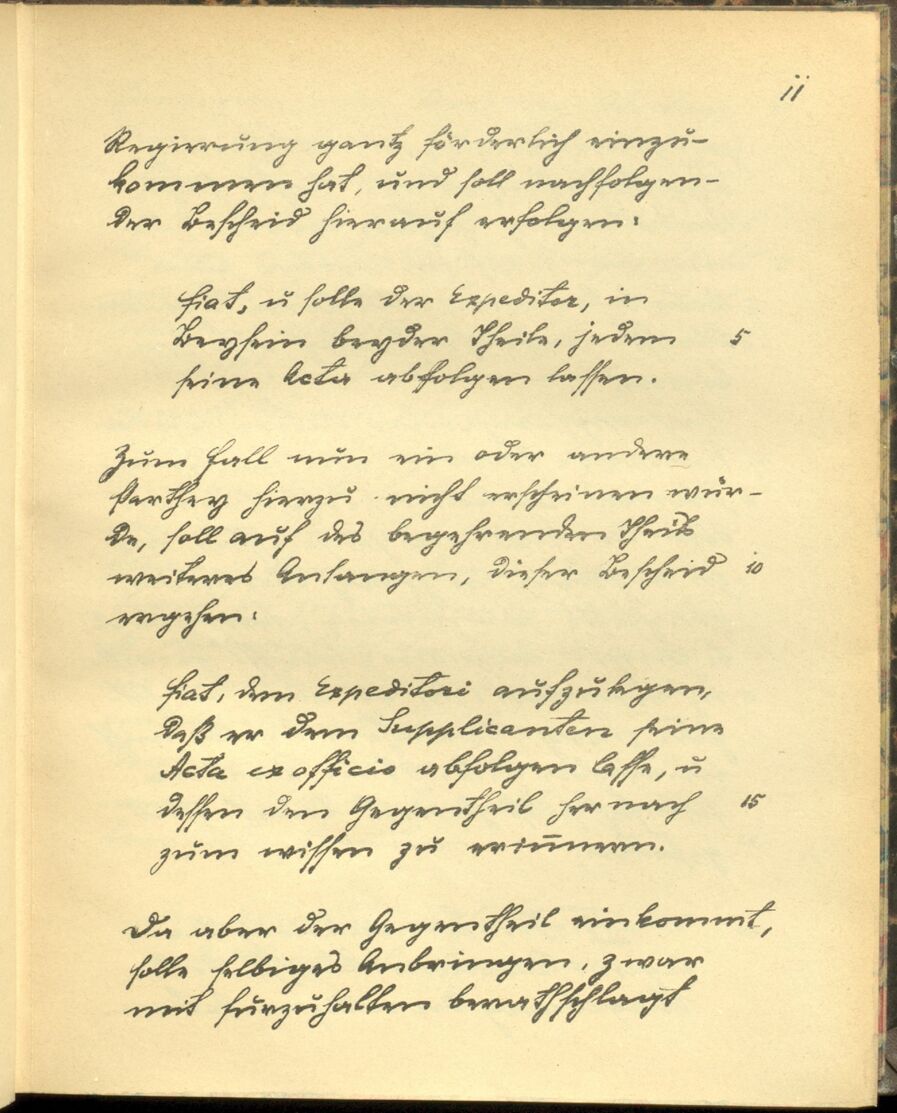 11
Regierrung gantz förderlich einzu-
kommen hat, und soll nachfolgen-
der Bescheid hierauf erfolgen:
fiat, u solle der Expeditor, in
Beysein beyder Theile, jedem 5
seine Acta abfolgen lassen.
Zum fall nun ein oder andere
Parthey hierzu nicht erscheinen wür-
de, soll auf des begehrenden Theils
weiteres Anlangen, dieser Bescheid 10
ergehen:
fiat, dem Expeditori aufzulegen,
daß er dem Supplicanten seine
Acta ex officio abfolgen lasse, u
dessen den Gegentheil hernach 15
zum wissen zu erinnern.
Da aber der Gegentheil einkommt,
solle selbiges Anbringen, zwar
mit fürzuhalten berathschlagt